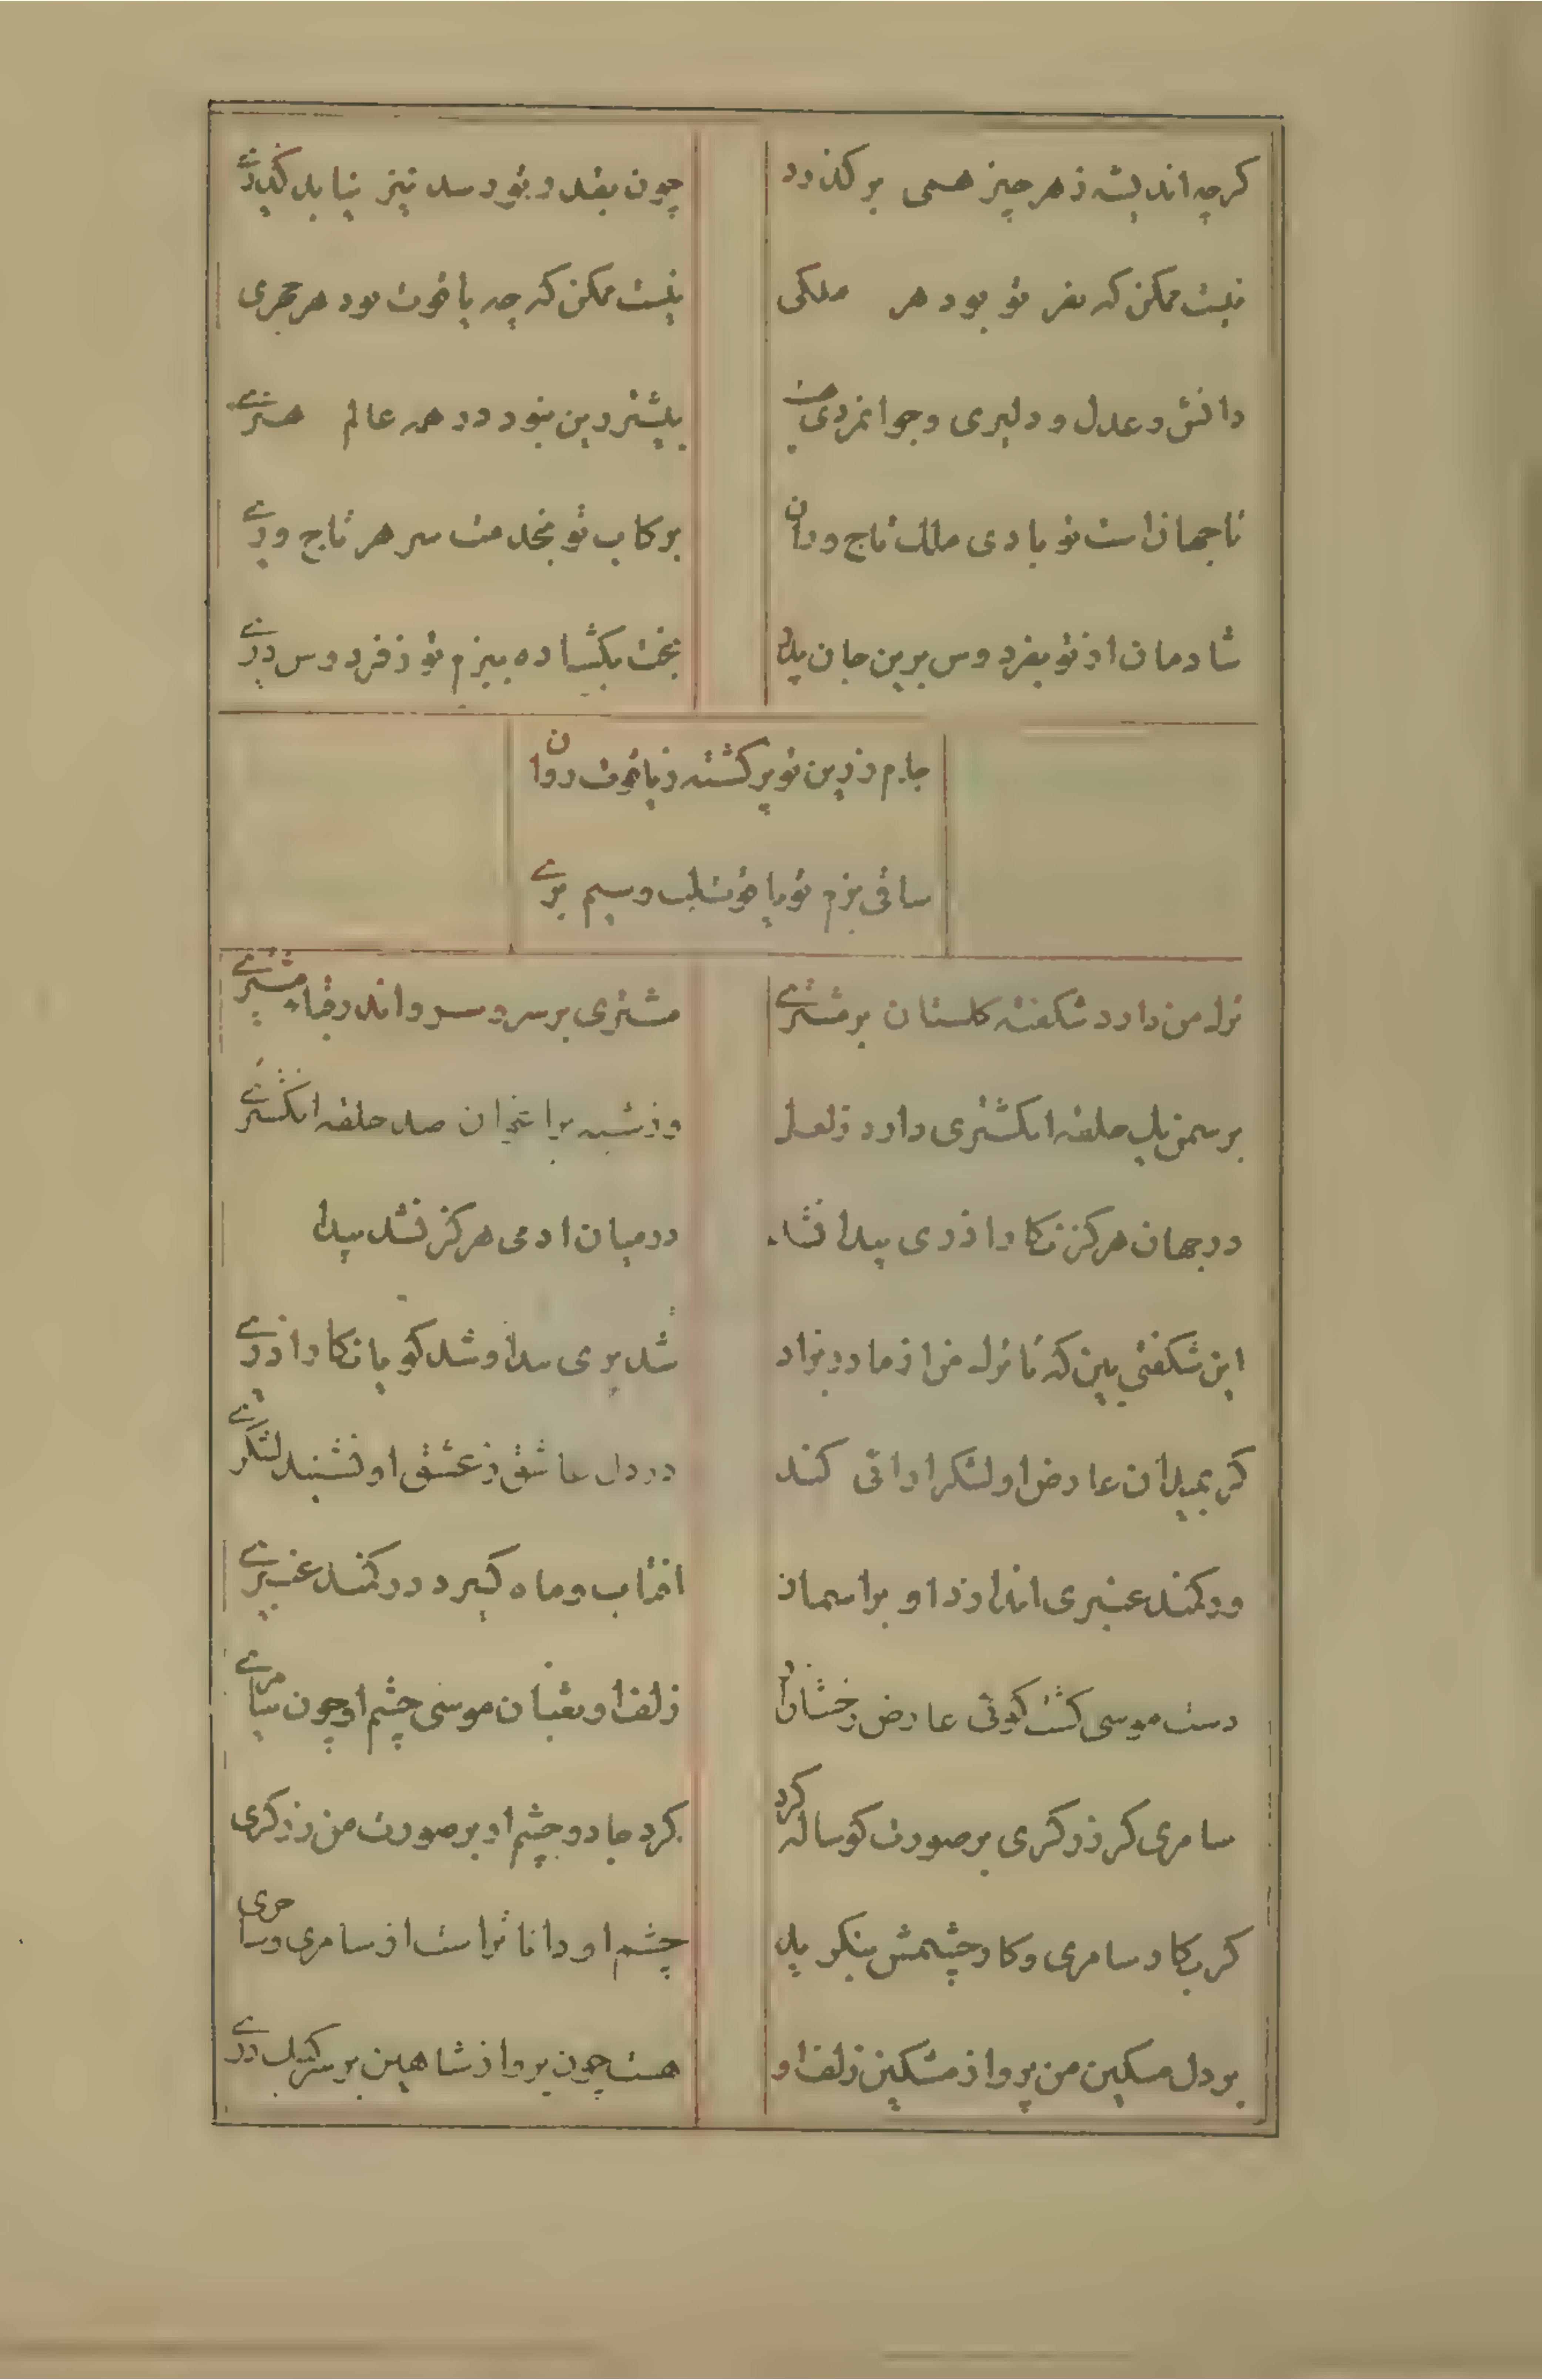 کرچه اندیشه ز هر چیز همی برکذرد
چون بقدر تو رسد نیز نیابد کذری
نیست ممکن که بفر تو بود هر ملکی
نیست ممکن که چه یاقوت بود هر حجری
دانش و عدل و دلیری و جوانمردی
بیشتر زین نبود در همه عالم هنری
تا جهان است تو بادی ملک تاج وران
برکاب تو بخدمت سر هر تاج وری
شادمان از تو بفردوس برین جان پدر
بخت بکشاده ببزم تو ز فردوس دری
جام زرین تو پر کشته ز یاقوت روان
ساقی بزم تو یاقوت لب و سیم بری
ترک من دارد شکفته کلستان بر مشتری
مشتری بر سرو و سرو اندر قباء مشتری
بر سمن یک حلقه انکشتری دارد ز لعل
وز شبه بر ارغوان صد حلقه انکشتری
در جهان هرکز نکار آزری پیدا نشد
در میان ادمی هرکز نشد پیدا
این شکفتی بین که تا ترک من از مادر بزاد
شد پری پیدا و شد کویا نکار آزری
کر بمیدان عارض او لشکر ارائی کند
در دل عاشق ز عشق او نشیند لشکری
ور کمند عنبری اندازد او بر اسمان
افتاب و ماه کیرد در کمند عنبری
دست موسی کشت کوئی عارض رخشان او
زلف او ثعبان موسی چشم او چون سامری
سامری کر زرکری بر صورت کوساله کرد
کرد جادو چشم او بر صورت من زرکری
کر بکار سامری و کار چشمش بنکرید
چشم او داناتر است از سامری و ساحری
بر دل مسکین من پرواز مشکین زلف او
هست چون پرواز شاهین بر سر کبک دری